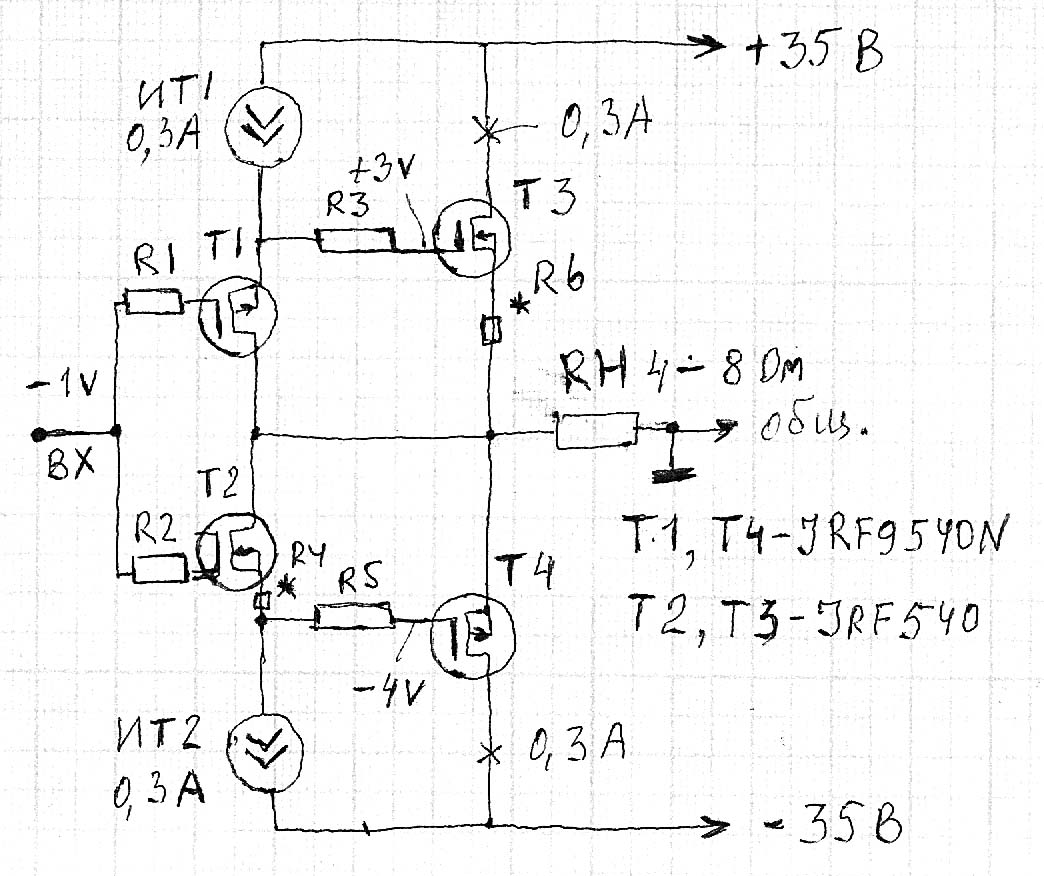 +35В
ИТ1
0,3А
0,3А
+3V
R3
Т3
Т1
R1
* R6
-1V
RН 4÷8 Ом
общ.
ВХ
Т2
R2
* R4
R5
Т4
Т1, Т4-IRF9540N
Т2, Т3-IRF540
-4V
ИТ2
0,3А
0,3А
-35В